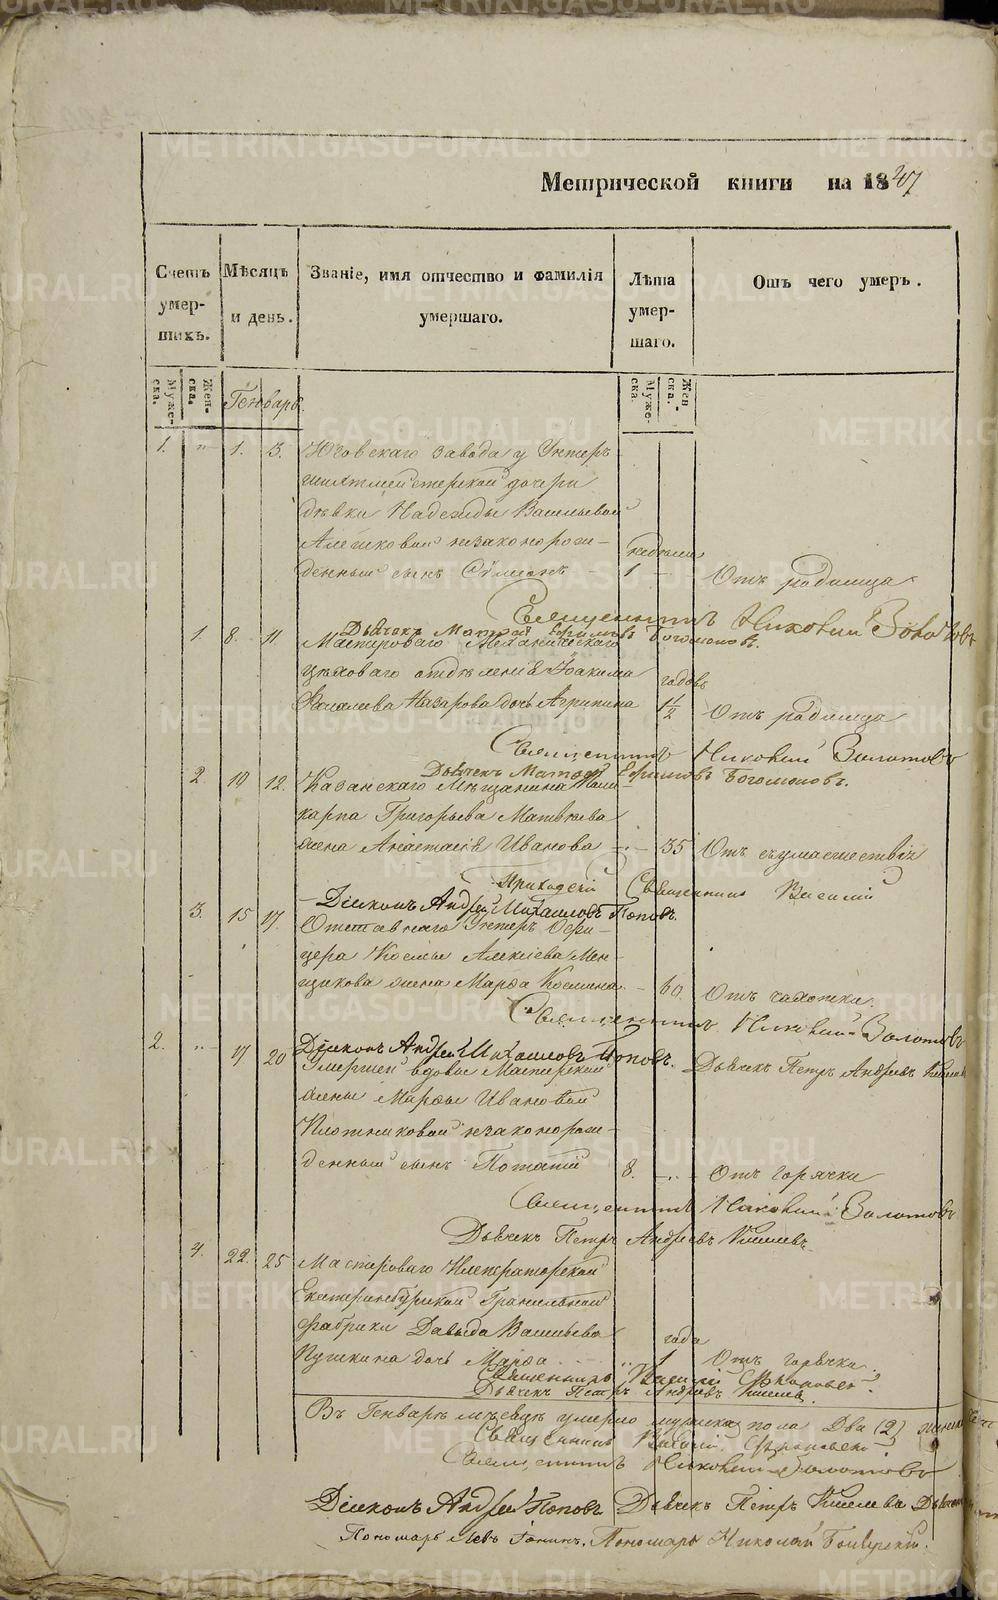 Метрической книги на 1847
Счетъ умер- шихъ.
Мѣсяцъ и день.
Званіе, имя отчество и фамилія умершаго.
Лѣта умер- шаго.
Отъ чего умеръ.
Муже- ска.
Жен- ска.
Генварь.
Муже- ска.
Жен- ска.
1. " 1. 3. Юговскаго завода у Унтеръ
шихтмейстерской дочери
дѣвки Надежды Васильевой
незаконорож-
недѣли
денный сынъ Сѵмеонъ - 1 - Отъ родимца
Священникъ Никовий Золотовъ
Дьячекъ Матвей Ефимовъ Богомоловъ.
1. 8. 11 Мастероваго Механическаго
цѣховаго отдѣленія Іоакима годовъ
Назарова дочь Агрипина 1½ Отъ родимца
Священникъ Никовий Золотовъ
Дьячекъ Матвей Ефимовъ Богомоловъ.
2. 10 12. Казанскаго Мѣщанина Поли
карпа Григорьева Матвѣева
жена Анастасія Иванова - 35 Отъ сумасшествія
Священникъ Василій
Діаконъ Андрей Михаиловъ Поповъ.
3. 15 17. Отставнаго Унтеръ Офи-
цера Космы Алексіева Мен-
щикова жена Марѳа Космина - 60. Отъ чахотки.
Священникъ Никовий Золотовъ
Діаконъ Андрей Михаиловъ Поповъ. Дьячекъ Петръ Андреевъ
2. " 17 20 Умершей вдовы Мастерской
жены Марѳы Ивановой
Плотниковой незаконорож-
денный сынъ Потапій 8. - Отъ горячки
Священникъ Никовий Золотовъ
Дьячекъ Петръ Андреевъ Киселевъ.
4. 22. 25 Мастероваго Императорской
Екатеринбургской Гранильной
фабрики Давыда Васильева года
Пушкина дочь Марѳа 1 Отъ горячки.
Священникъ Василій
Дьячекъ Петръ Андреевъ Киселевъ.
Въ Генварѣ мѣсяцѣ умерло мужеска пола два (2)
Священникъ Василій
Священникъ Никовий Золотовъ
Діаконъ Андрей Поповъ Дьячекъ Петръ Киселевъ
Пономарь Левъ Пономарь Николай
METRIKI.GASO-URAL.RU